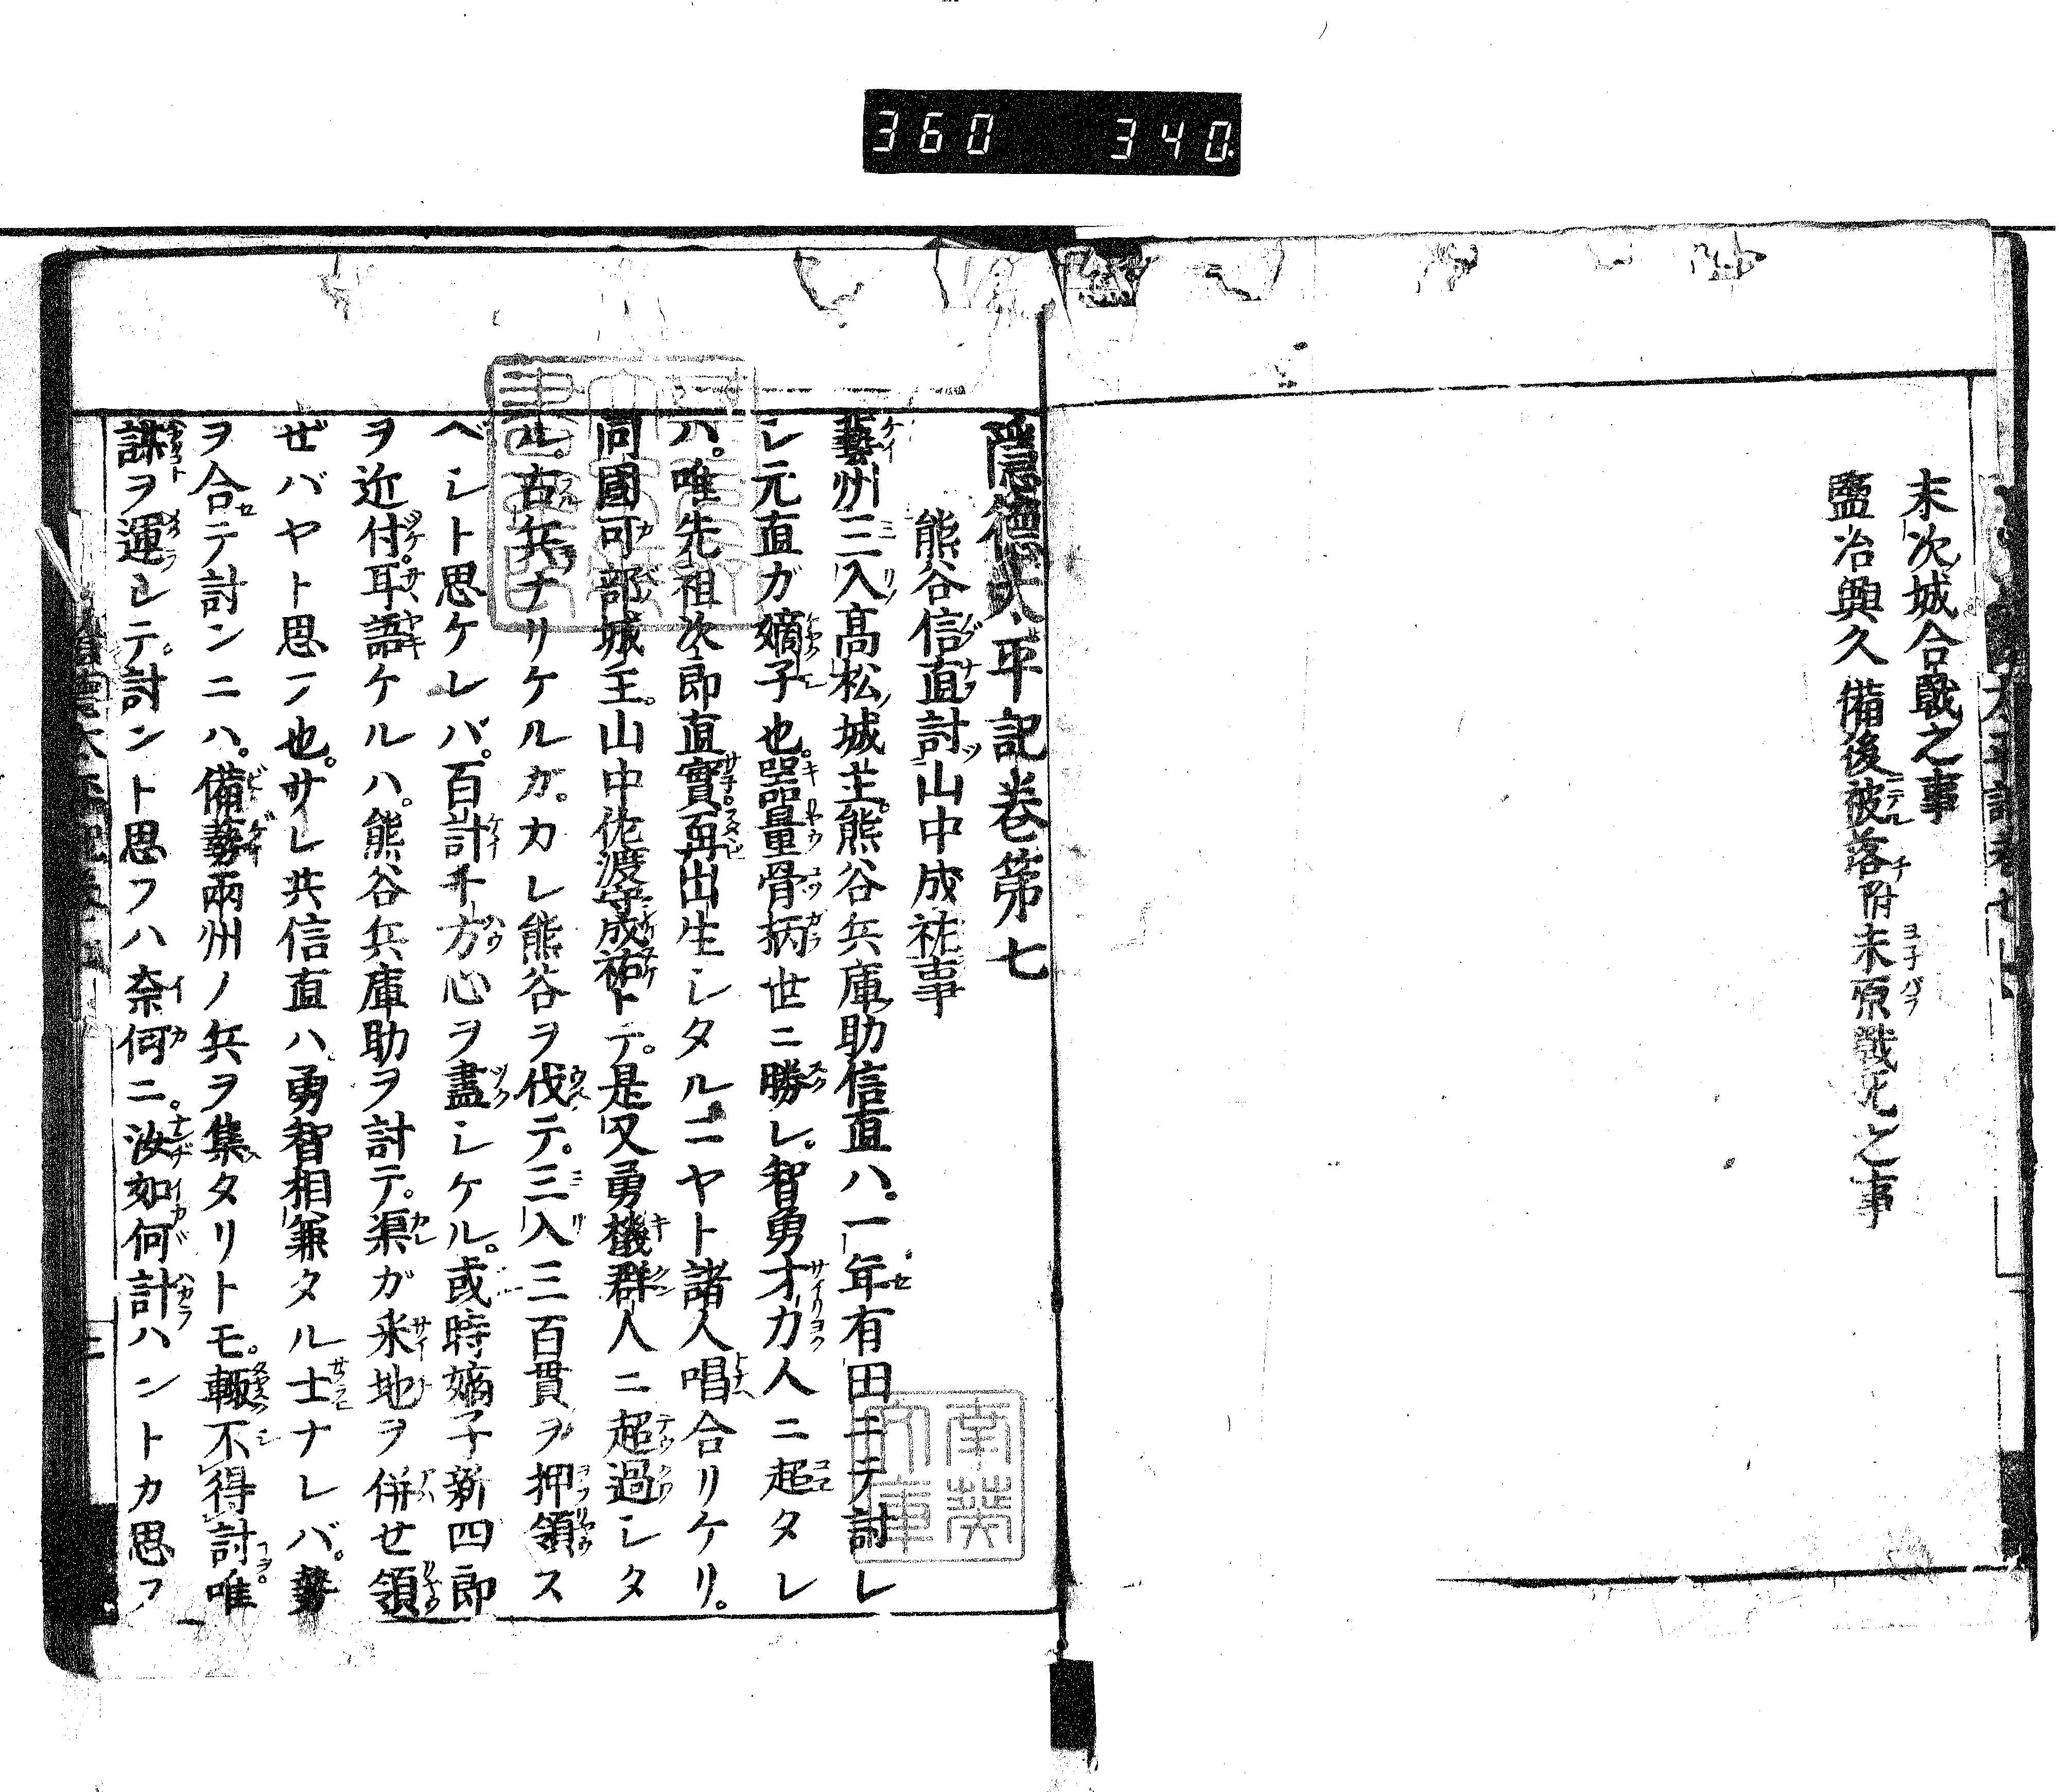 360 340.
末次城合戰之事
鹽冶興久備後被落附未原戰死之事
隱德太平記卷第七
熊谷信直討山中成祐事
藝州三入高松城主。熊谷兵庫助信直ハ。一年有田ニテ討レ
シ元直ガ嫡子也。器量骨柄世ニ勝レ。智勇才力人ニ超タレ
ハ。唯先祖次郎直實。再出生シタルニヤト諸人唱合リケリ。
同國可部城主。山中佐渡守成祐トテ。是又勇機群人ニ超過シタ
ル。古兵ナリケルカ。カレ熊谷ヲ伐テ。三入三百貫ヲ押領ス
ベシト思ケレバ。百計千方心ヲ盡シケル。或時嫡子新四郎
ヲ近付。耳語ケルハ。熊谷兵庫助ヲ討テ。渠ガ釆地ヲ併セ領
ゼバヤト思フ也。サレ共信直ハ勇智相兼タル士ナレバ。勢
ヲ合テ討ンニハ。備藝兩州ノ兵ヲ集タリトモ。輙不得討唯
謀ヲ運シテ。討ント思フハ奈何ニ。汝如何計ハントカ思フ
南葵
文庫